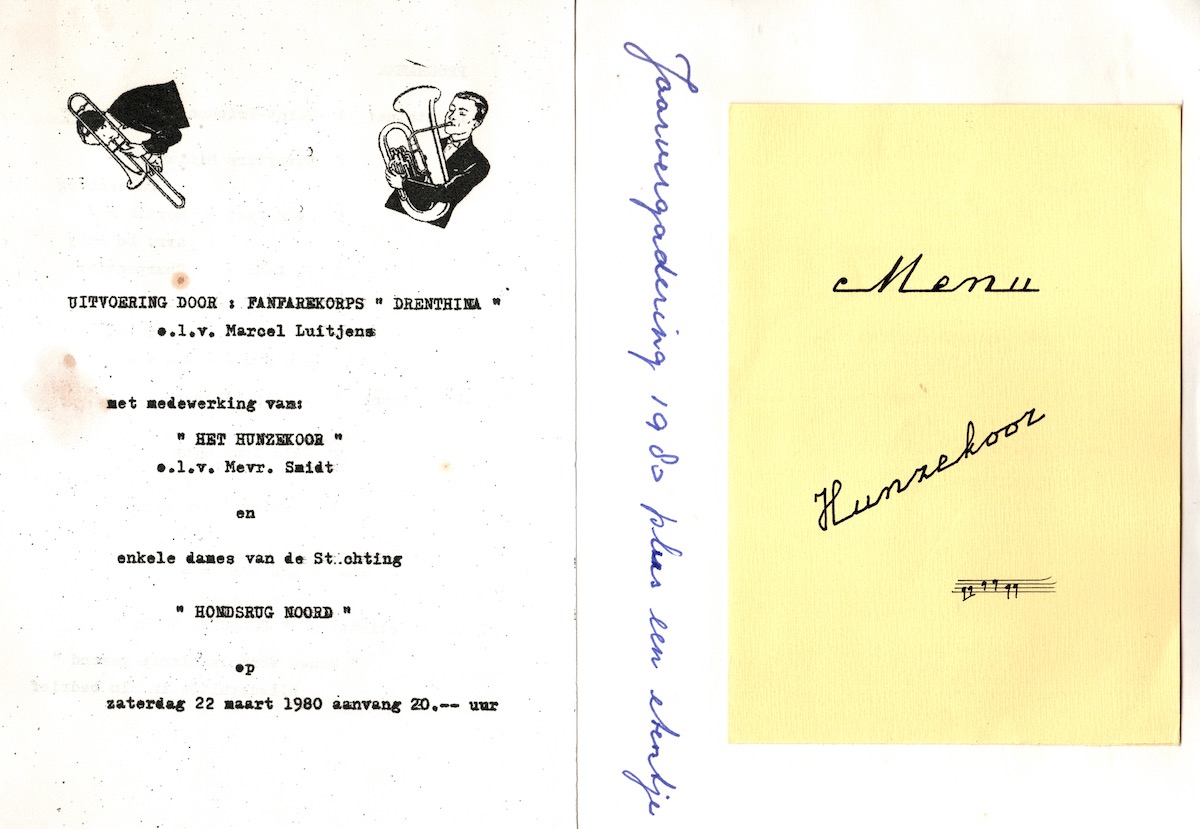 UITVOERING DOOR : FANFAREKORPS " DRENTHINA "
o.l.v. Marcel Luitjens
met medewerking van:
" HET HUNZEKOOR "
o.l.v. Mevr. Smidt
en
enkele dames van de St..chting
" HONDSRUG NOORD "
op
zaterdag 22 maart 1980 aanvang 20.-- uur
Jaarvergadering 1980 plus een etentje
Menu
Hunzekoor